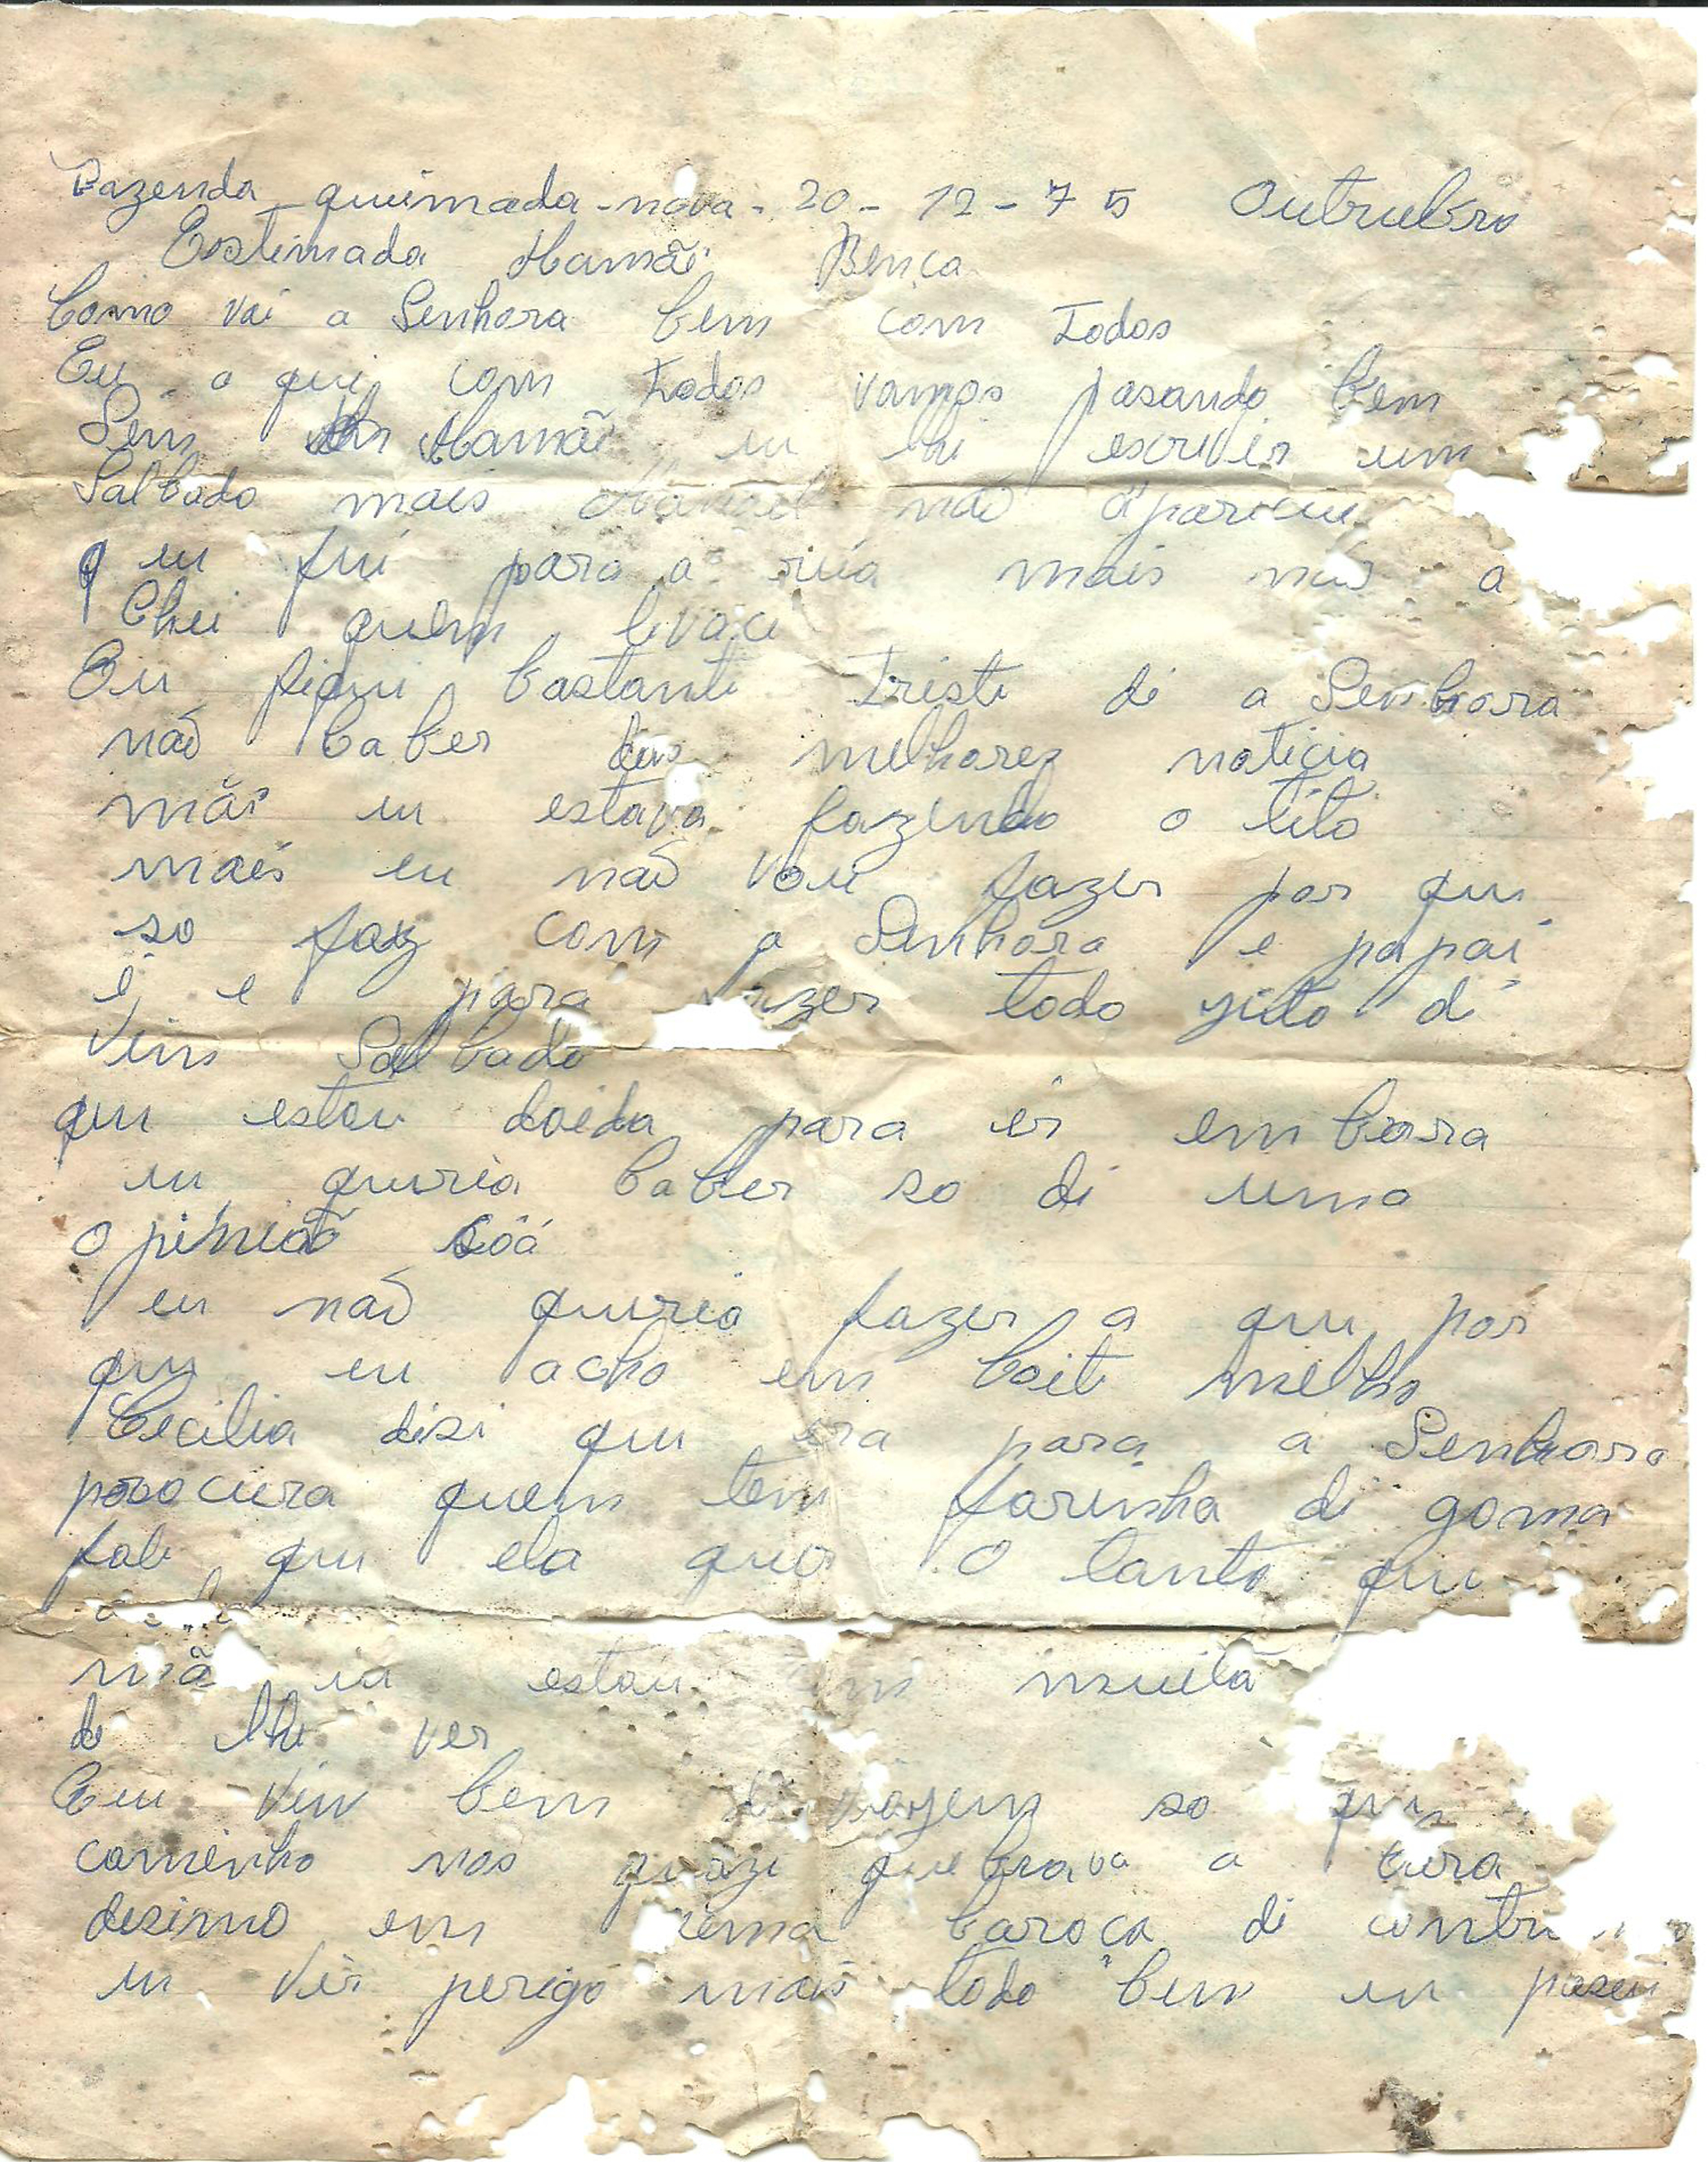 Fazenda queimada-nova. 20-12-75 Outrubro
Estimada Mamãi Bença
Como vai a Senhora bem com todos
Eu a qui com todos vamos pasando bem
Sem Mamãi eu lhi escrivir um
Salbado mais não apariceu
q eu fui para a rua mais não a
Chei quem levaci
Eu fiqui bastanti tristi di a Senhora
não saber das melhorez noticia
mãi eu estava fazendo o tito
mais eu não vou fazer por qui
so faz com a Senhora e papai
é e para todo gito di
vim Salbado
qui estou doida para ir em bora
eu quiria saber so di uma
opinião
eu não quiria fazer a qui por
qui eu acho em boiti melho
Cecilia disi qui era para a Senhora
procura quem tem farinha di goma
fali qui ela quer o tanto qui
mã eu estou muita
di lhi ver
Eu vim bem di viagem so
caminho nos quazi quebrava a
desimo em uma baroca di
eu vir perigo mais todo bem eu pasei